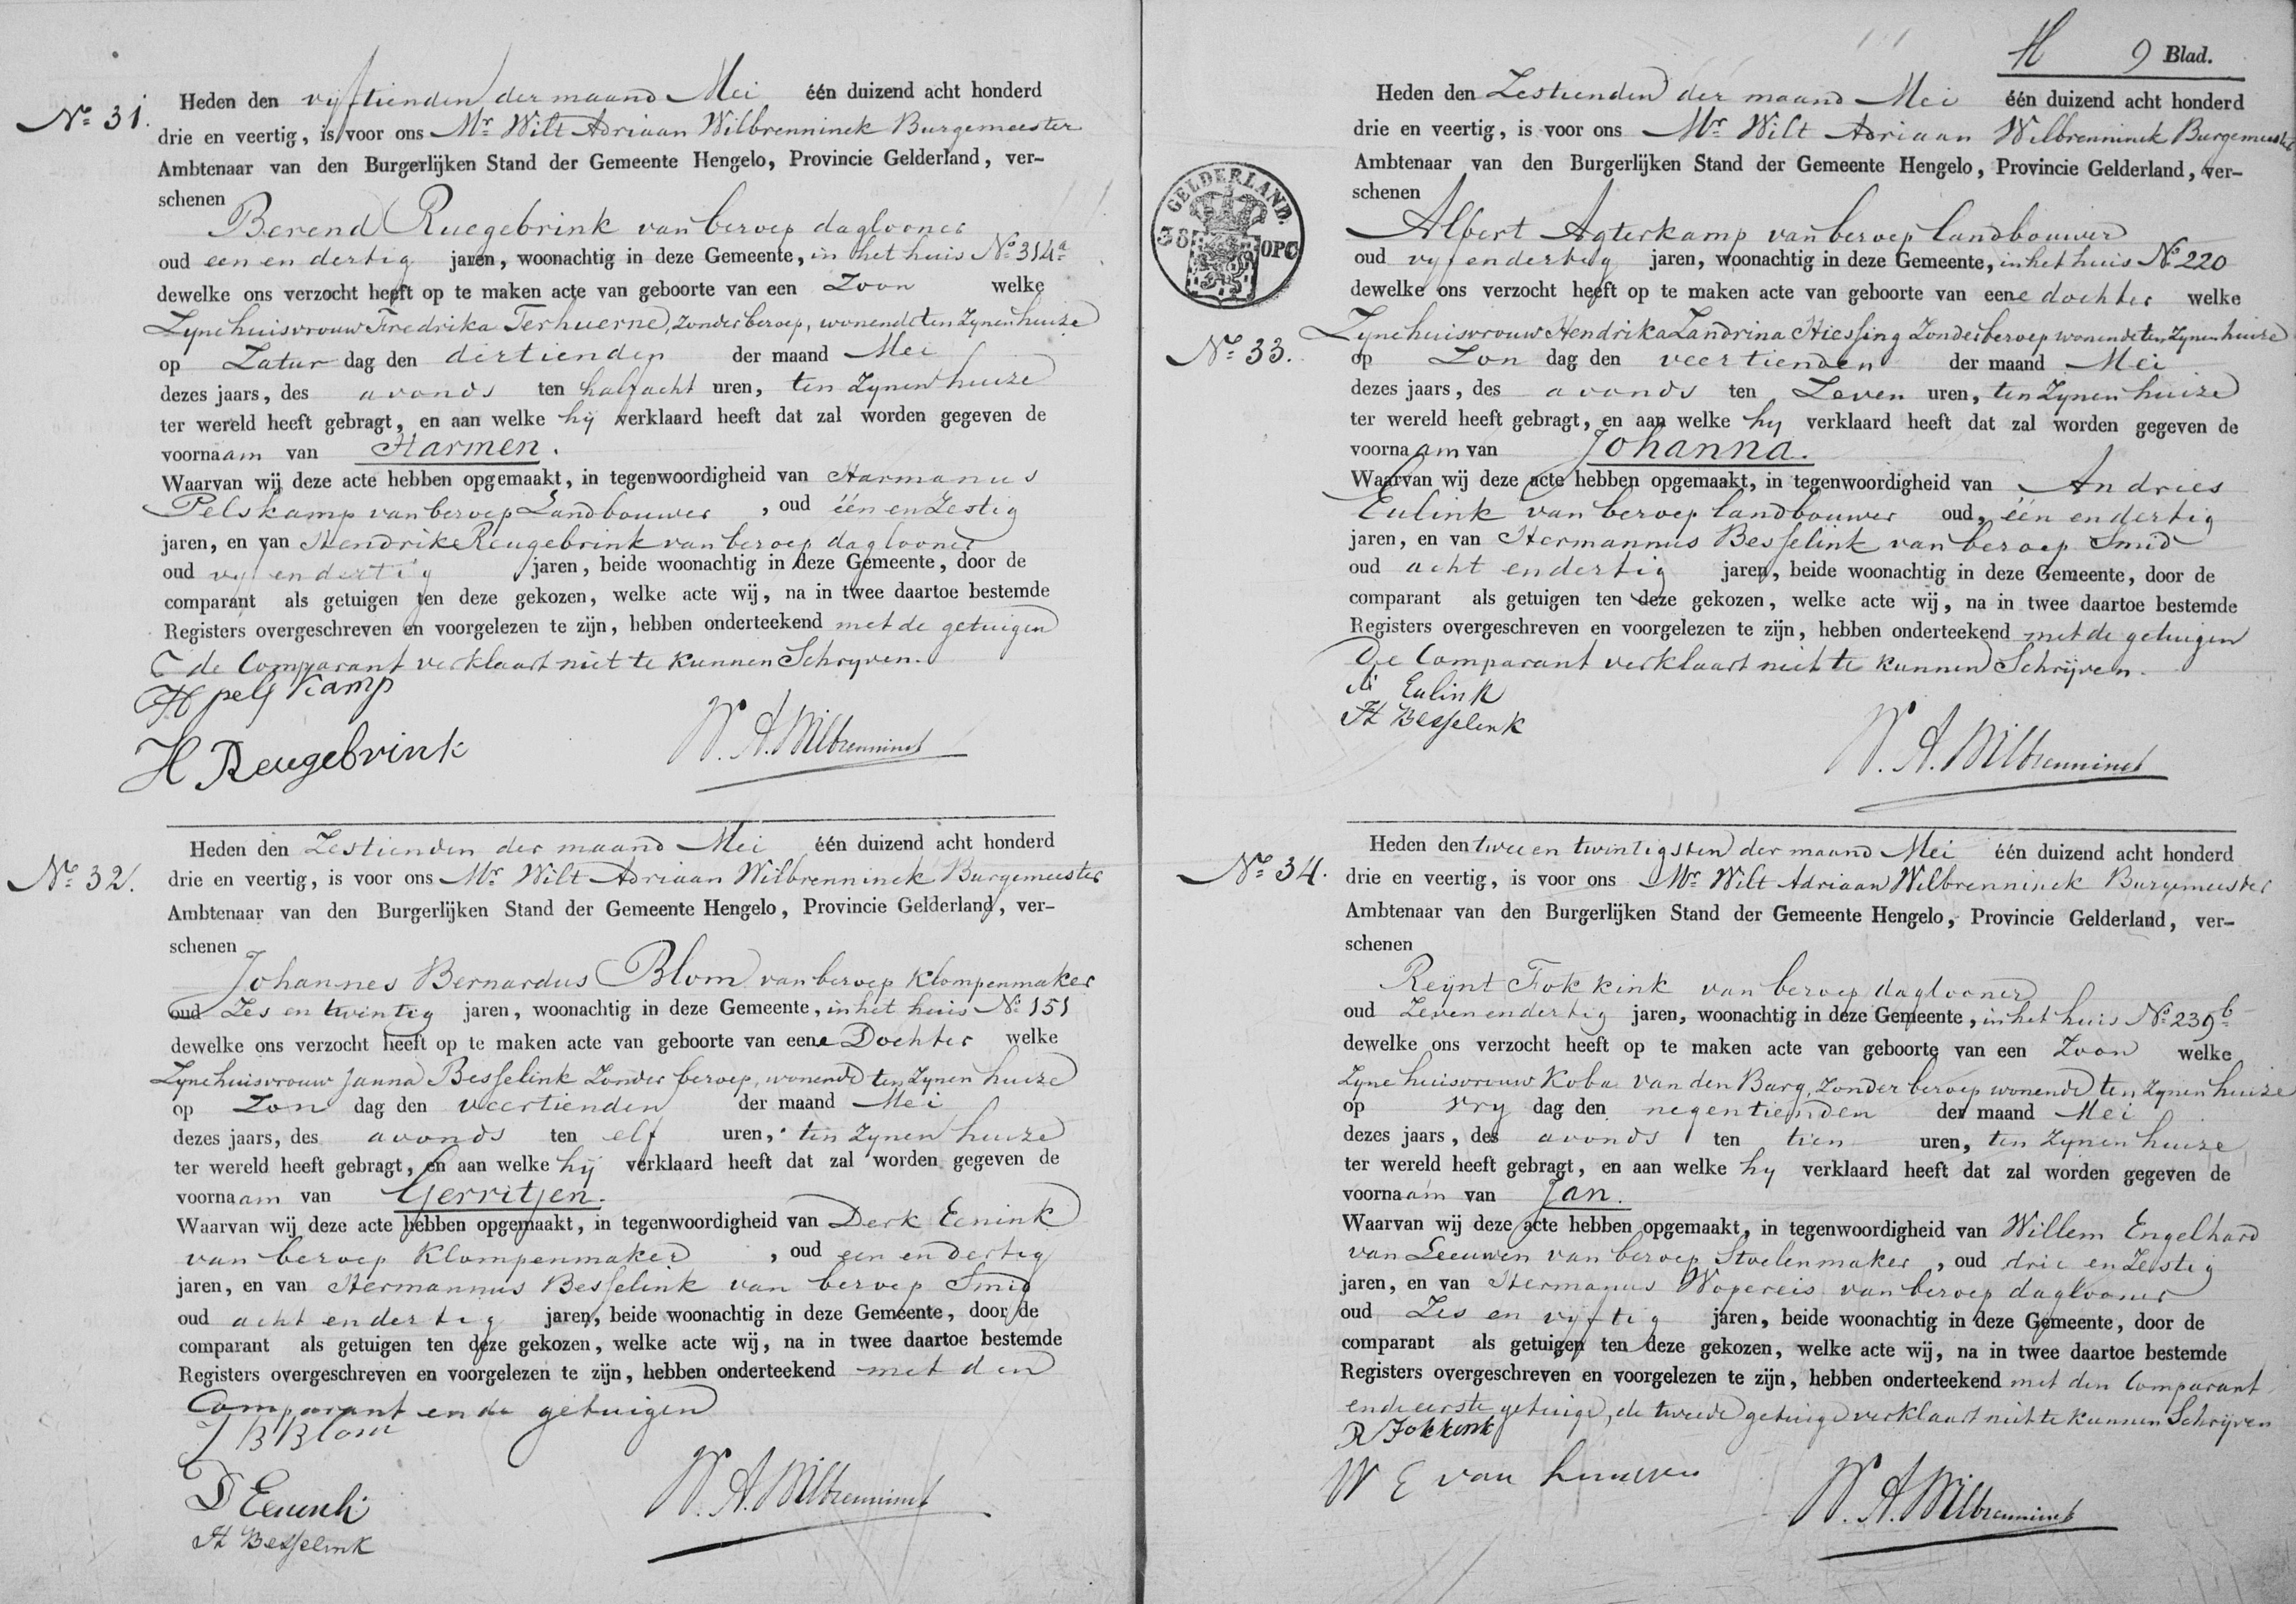 No. 31. Heden den vyftienden der maand Mei één duizend acht honderd
drie en veertig, is voor ons Mr. Wilt Adriaan Wilbrenninck Burgemeester
Ambtenaar van den Burgerlijken Stand der Gemeente Hengelo, Provincie Gelderland, ver-
schenen
Berend Ruegebrink van beroep daglooner
oud een en dertig jaren, woonachtig in deze Gemeente, in het huis No. 314a
dewelke ons verzocht heeft op te maken acte van geboorte van een Zoon welke
Zyne huisvrouw Fredrika Terhuerne, zonder beroep, wonende ten Zynen huize
op Zatur dag den dertienden der maand Mei
dezes jaars, des avonds ten half acht uren, ten Zynen huize
ter wereld heeft gebragt, en aan welke hij verklaard heeft dat zal worden gegeven de
voornaam van Harmen.
Waarvan wij deze acte hebben opgemaakt, in tegenwoordigheid van Harmanus
Pelskamp van beroep Landbouwer, oud één en Zestig
jaren, en van Hendrik Reugebrink van beroep daglooner
oud vyf en dertig jaren, beide woonachtig in deze Gemeente, door de
comparant als getuigen ten deze gekozen, welke acte wij, na in twee daartoe bestemde
Registers overgeschreven en voorgelezen te zijn, hebben onderteekend met de getuigen
de Comparant verklaart niet te kunnen Schryven.
H pels Kamp
H Reugebrink
W. A. Wilbrenninck
No. 32. Heden den Zestienden der maand Mei één duizend acht honderd
drie en veertig, is voor ons Mr. Wilt Adriaan Wilbrenninck Burgemeester
Ambtenaar van den Burgerlijken Stand der Gemeente Hengelo, Provincie Gelderland, ver-
schenen
Johannes Bernardus Blom van beroep Klompenmaker
oud Zes en twintig jaren, woonachtig in deze Gemeente, in het huis No. 151
dewelke ons verzocht heeft op te maken acte van geboorte van eene Dochter welke
Zyne huisvrouw Janna Besselink Zonder beroep, wonende ten Zynen huize
op Zon dag den veertienden der maand Mei
dezes jaars, des avonds ten elf uren, ten Zynen huize
ter wereld heeft gebragt, en aan welke hij verklaard heeft dat zal worden gegeven de
voornaam van Gerritjen.
Waarvan wij deze acte hebben opgemaakt, in tegenwoordigheid van Derk Eenink
van beroep Klompenmaker, oud een en dertig
jaren, en van Hermannus Besselink van beroep Smid
oud acht en dertig jaren, beide woonachtig in deze Gemeente, door de
comparant als getuigen ten deze gekozen, welke acte wij, na in twee daartoe bestemde
Registers overgeschreven en voorgelezen te zijn, hebben onderteekend met den
Comparant en de getuigen
J B Blom
D Eenink
H Besselink
W. A. Wilbrenninck
9 Blad.
GELDERLAND.
38 OPC
Heden den Zestienden der maand Mei één duizend acht honderd
drie en veertig, is voor ons Mr. Wilt Adriaan Wilbrenninck Burgemeester
Ambtenaar van den Burgerlijken Stand der Gemeente Hengelo, Provincie Gelderland, ver-
schenen
Albert Agterkamp van beroep landbouwer
oud vyf en dertig jaren, woonachtig in deze Gemeente, in het huis No. 220
dewelke ons verzocht heeft op te maken acte van geboorte van eene dochter welke
Zyne huisvrouw Hendrika Zandrina Hiessing Zonder beroep wonende ten Zynen huize
No. 33. op Zon dag den veertienden der maand Mei
dezes jaars, des avonds ten Zeven uren, ten Zynen huize
ter wereld heeft gebragt, en aan welke hy verklaard heeft dat zal worden gegeven de
voornaam van Johanna.
Waarvan wij deze acte hebben opgemaakt, in tegenwoordigheid van Andries
Eulink van beroep landbouwer oud, één en dertig
jaren, en van Hermannus Besselink van beroep Smid
oud acht en dertig jaren, beide woonachtig in deze Gemeente, door de
comparant als getuigen ten deze gekozen, welke acte wij, na in twee daartoe bestemde
Registers overgeschreven en voorgelezen te zijn, hebben onderteekend met de getuigen
De Comparant verklaart niet te kunnen Schrijven.
A Eulink
H Besselink
W. A. Wilbrenninck
No. 34. Heden den twee en twintigsten der maand Mei één duizend acht honderd
drie en veertig, is voor ons Mr. Wilt Adriaan Wilbrenninck Burgemeester
Ambtenaar van den Burgerlijken Stand der Gemeente Hengelo, Provincie Gelderland, ver-
schenen
Reijnt Fokkink van beroep daglooner
oud Zeven en dertig jaren, woonachtig in deze Gemeente, in het huis No. 239b
dewelke ons verzocht heeft op te maken acte van geboorte van een Zoon welke
Zyne huisvrouw Koba van den Barg, Zonder beroep wonende ten Zynen huize
op Vry dag den negentienden der maand Mei
dezes jaars, des avonds ten tien uren, ten Zynen huize
ter wereld heeft gebragt, en aan welke hy verklaard heeft dat zal worden gegeven de
voornaam van Jan.
Waarvan wij deze acte hebben opgemaakt, in tegenwoordigheid van Willem Engelhard
van Leeuwen van beroep Stoelenmaker, oud drie en Zestig
jaren, en van Hermanus Wopereis van beroep daglooner
oud Zes en vyftig jaren, beide woonachtig in deze Gemeente, door de
comparant als getuigen ten deze gekozen, welke acte wij, na in twee daartoe bestemde
Registers overgeschreven en voorgelezen te zijn, hebben onderteekend met den Comparant
en de eerste getuige, de tweede getuige verklaart niet te kunnen Schrijven
R Fokkink
W E van Leeuwen
W. A. Wilbrenninck